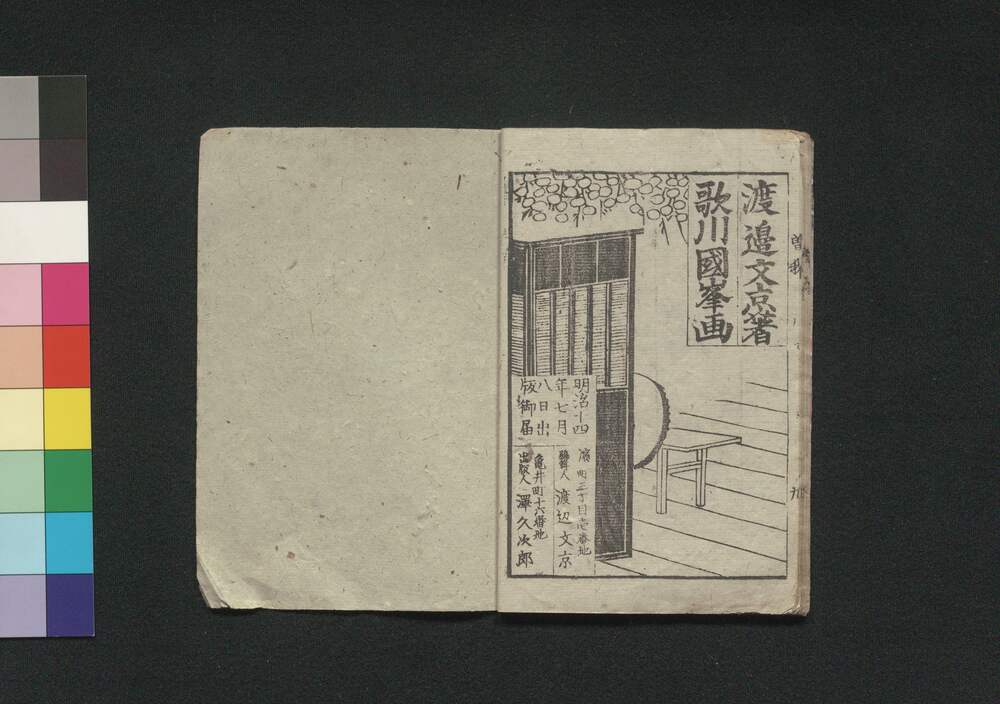 渡邉文京著
歌川國峯画
明治十四
年七月
八日出
版御届
濱町三丁目壱番地
編輯人 渡辺文京
亀井町十六番地
出版人 澤久次郎
曽我